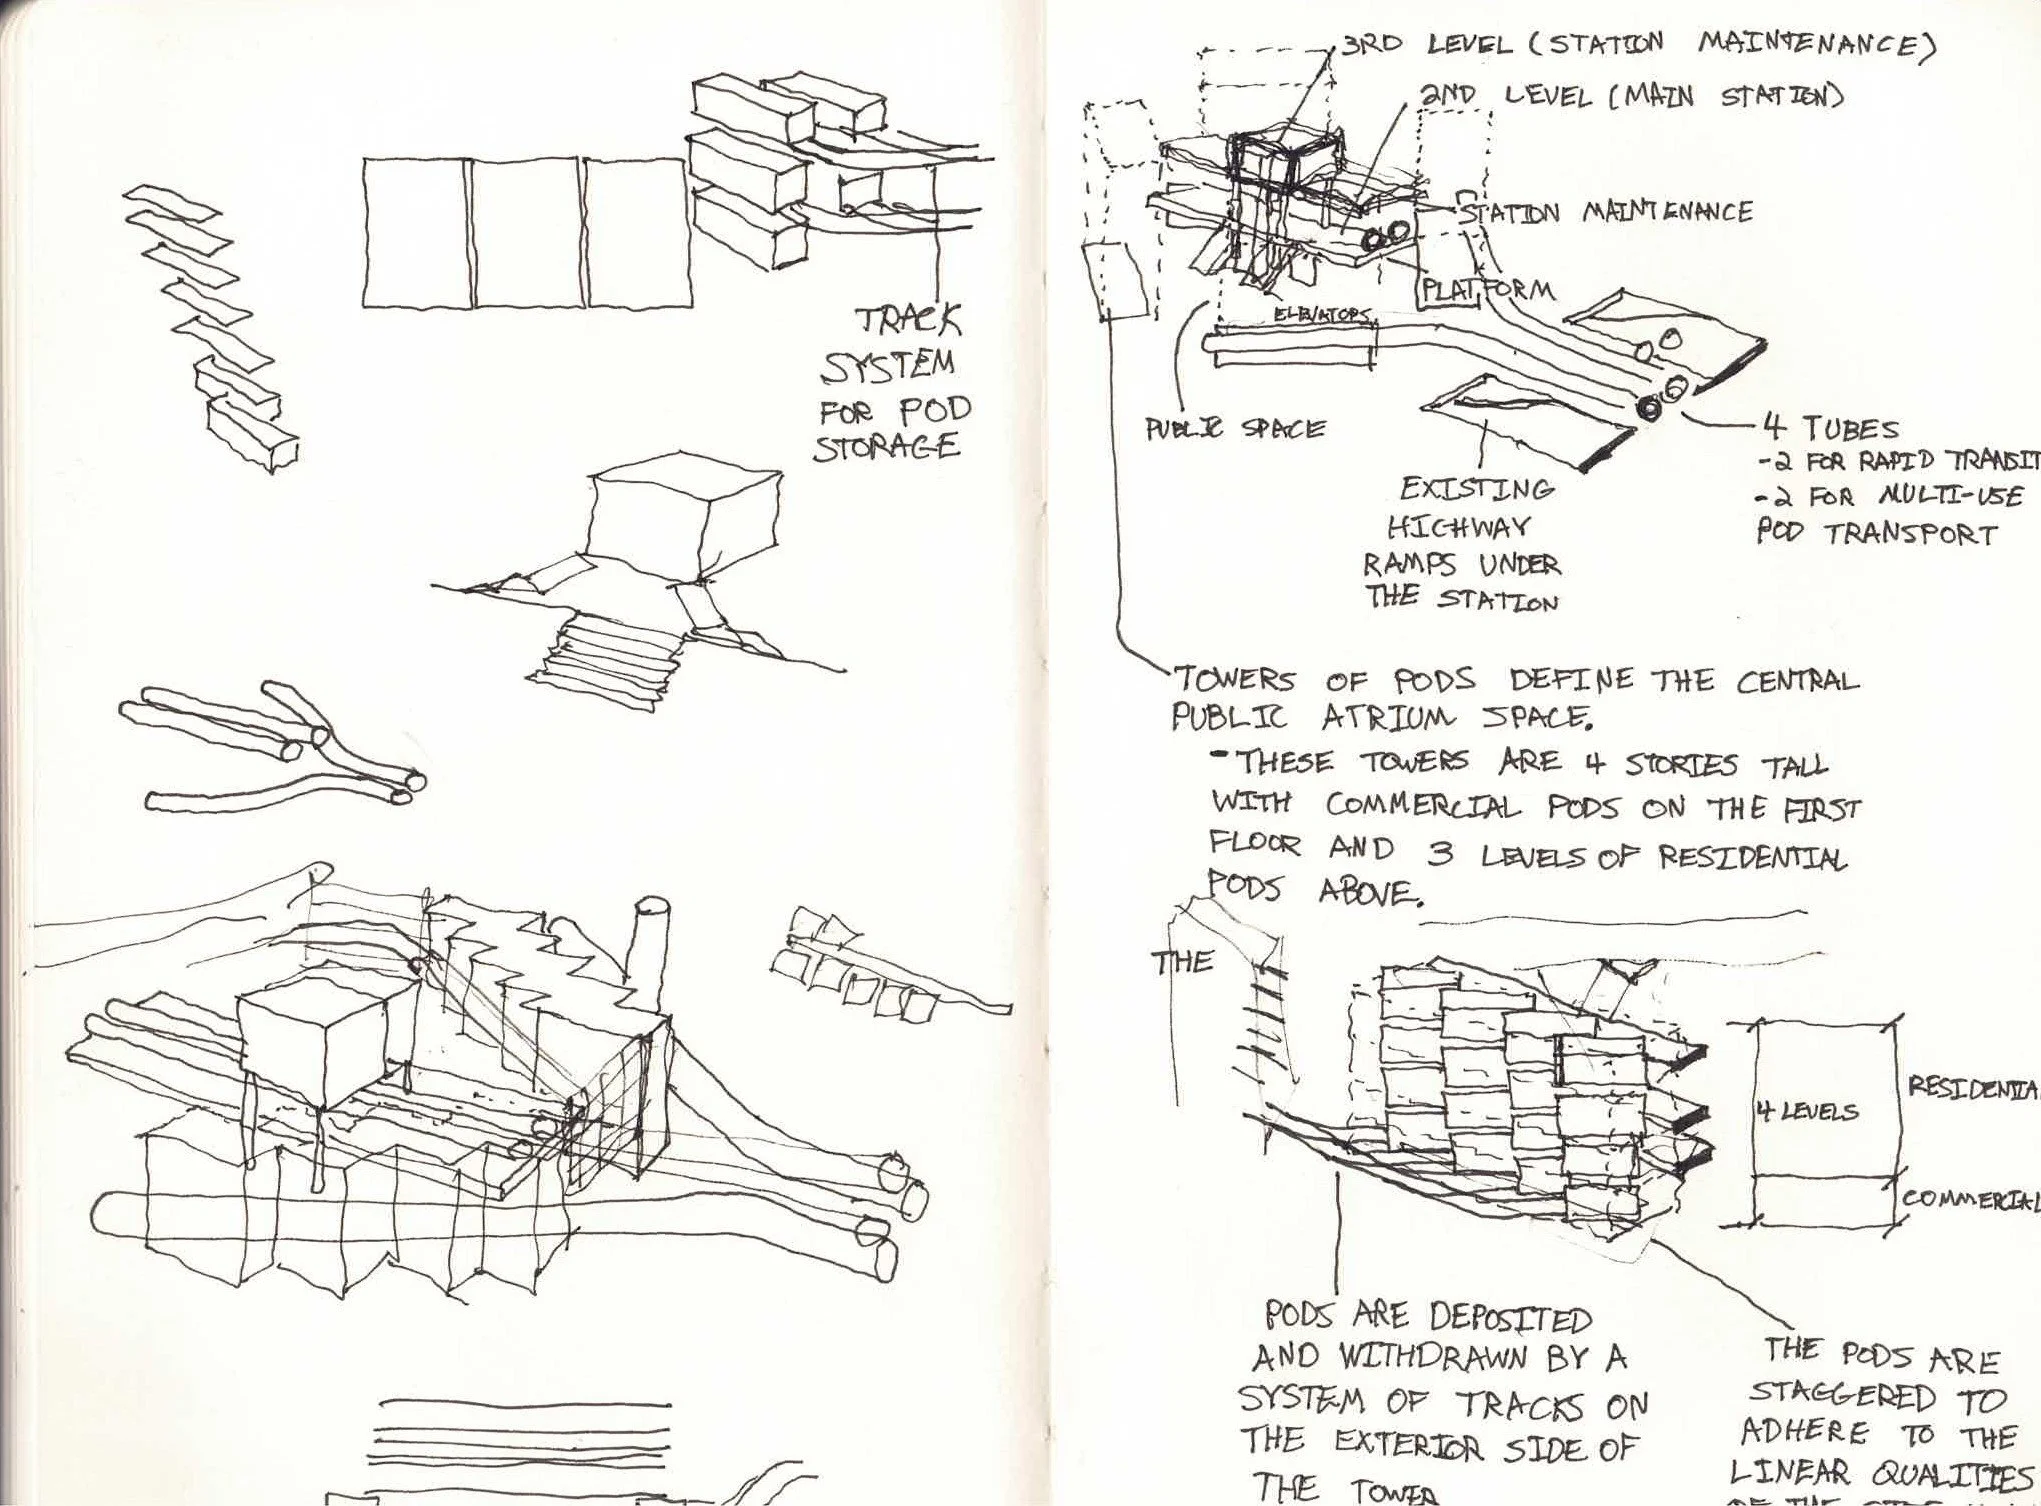 TRACK
SYSTEM
FOR POD
STORAGE
3RD LEVEL (STATION MAINTENANCE)
2ND LEVEL (MAIN STATION)
STATION MAINTENANCE
PLATFORM
ELEVATORS
PUBLIC SPACE
4 TUBES
-2 FOR RAPID TRANSIT
-2 FOR MULTI-USE
POD TRANSPORT
EXISTING
HIGHWAY
RAMPS UNDER
THE STATION
TOWERS OF PODS DEFINE THE CENTRAL
PUBLIC ATRIUM SPACE.
-THESE TOWERS ARE 4 STORIES TALL
WITH COMMERCIAL PODS ON THE FIRST
FLOOR AND 3 LEVELS OF RESIDENTIAL
PODS ABOVE.
THE
4 LEVELS
RESIDENTIA
COMMERCIAL
PODS ARE DEPOSITED
AND WITHDRAWN BY A
SYSTEM OF TRACKS ON
THE EXTERIOR SIDE OF
THE TOWER
THE PODS ARE
STAGGERED TO
ADHERE TO THE
LINEAR QUALITIES
OF THE